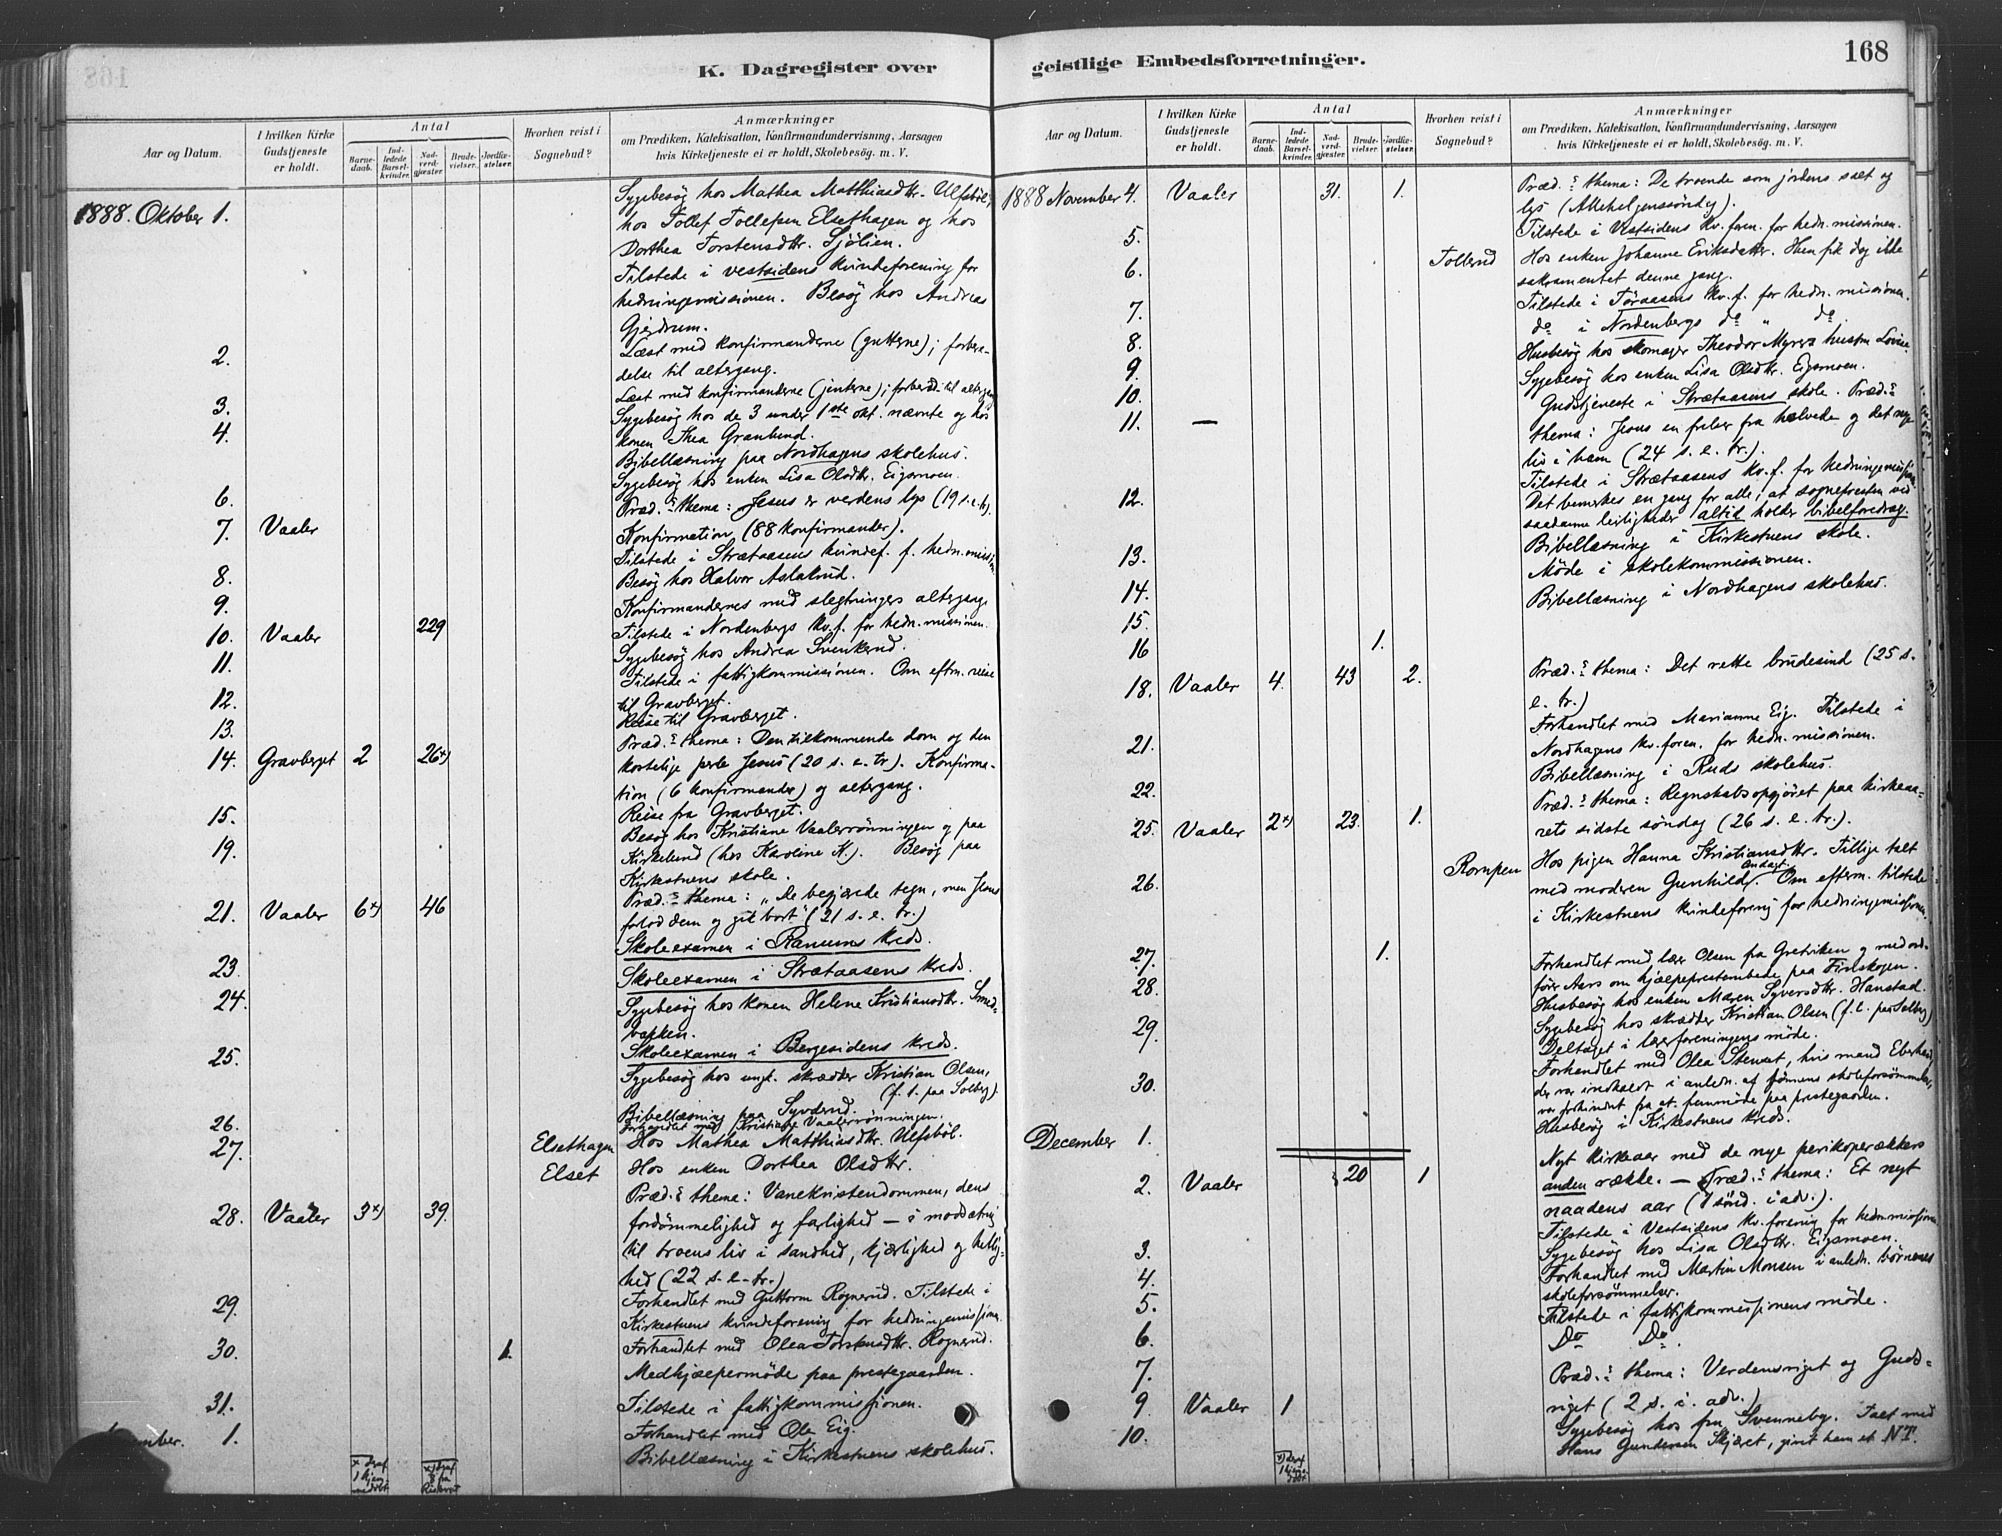 K. Dagregister over
Aar og Datum.
I hvilken Kirke Gudstjeneste er holdt.
Antal
Barnedaab.
Indledede Barselkvinder.
Nadverdgjæster.
Brudevielser.
Jordfæstelser.
Hvorhen reist i Sognebud?
Anmærkninger
om Prædiken, Katekisation, Konfirmandundervisning, Aarsagen
hvis Kirketjeneste ei er holdt, Skolebesög. m. V.
1888. Oktober 1.
Sygebesög hos Mathea Matthiasdtr. Ulfsböl,
hos Tollef Tollefsen Elsethagen og hos
Dorthea Torstensdtr. Sjölien.
Tilstede i vestsidens kvindeforening for
hedningemissionen. Besög hos Andreas
Gjerdrum.
2. Læst med konfirmanderne (gutterne); forbere-
delse til altergang.
3. Læst med konfirmanderne (jenterne); forbered. til altergang
4. Sygebesög hos de 3 under 1ste okt. nævnte og hos
konen Thea Granlund.
Bibellæsning paa Nordhagens skolehus.
6. Sygebesög hos enken Lisa Olsdtr. Eigsmoen.
7. Vaaler Præd. thema: Jesus er verdens lys (19 s. e. tr).
Konfirmation (88 konfirmander).
8. Tilstede i Strætaasens kvindef. f. hedn. mission
9. Besög hos Halvor Aslakrud.
10. Vaaler 229 Konfirmandernes med slegtningers altergang.
11. Tilstede i Nordenbergs kv. f. for hedn. missionen.
12. Sygebesög hos Andrea Svenkerud.
Tilstede i fattigkommissionen. Om eftm. reise
til Gravberget.
13. Reise til Gravberget.
14. Gravberget 2 26x) Præd. thema: Den tilkommende dom og den
kostelige perle Jesus (20 s. e. tr). Konfirma-
tion (6 konfirmander) og altergang.
15. Reise fra Gravberget.
19. Besög hos Kristiane Vaalerrönningen og paa
Kirkelund (hos Karoline K.). Besög paa
Kirkestuens skole.
21. Vaaler 6x) 46 Præd. thema: "De begjærede tegn, men Jesus
forlod dem og gik bort" (21 s. e. tr.)
23. Skoleexamen i Ranums kreds.
24. Skoleexamen i Strætaasens kreds.
Sygebesög hos konen Helene Kristiansdtr. Smed-
bakken.
25. Skoleexamen i Bergesidens kreds.
Sygebesög hos ungk. skrædder Kristian Olsen,
(f. l. paa Solberg)
26. Bibellæsning paa Syverud.
Forhandlet med Kristiane Vaalerrönningen.
27. Elsethagen Hos Mathea Matthiasdtr. Ulfsböl.
Elset Hos enken Dorthea Olsdtr.
28. Vaaler 3x) 39. Præd. thema: Vanekristendommen, dens
fordömmelighed og farlighed — i modsætning
til troens liv i sandhed, kjærlighed og hellig-
hed (22 s. e. tr.)
29. Forhandlet med Guttorm Rognerud. Tilstede i
Kirkestuens kvindeforening for hedningemissionen.
30. 1. Forhandlet med Olea Torstensdtr. Rognerud.
Medhjælpermöde paa prestegaarden.
31. Tilstede i fattigkommissionen.
1. Forhandlet med Ole Eig.
Bibellæsning i Kirkestuens skolehus.
x deraf 1 hjemmedöbt
x) deraf 8 fra
geistlige Embedsforretninger.
168
Aar og Datum.
I hvilken Kirke Gudstjeneste er holdt.
Antal
Barnedaab.
Indledede Barselkvinder.
Nadverdgjæster.
Brudevielser.
Jordfæstelser.
Hvorhen reist i Sognebud?
Anmærkninger
om Prædiken, Katekisation, Konfirmandundervisning, Aarsagen
hvis Kirketjeneste ei er holdt, Skolebesög. m. V.
1888 November 4. Vaaler 31. 1. Præd. thema: De troende som jordens salt og
lys (Allehelgenssöndag).
5. Tilstede i Vestsidens kv. foren. for hedn. missionen.
6. Tollerud Hos enken Johanne Eriksdatter. Hun fik dog ikke
sakramentet denne gang.
7. Tilstede i Toraasens kv. f. for hedn. missionen.
8. do i Nordenbergs do " do
9. Husbesög hos skomager Theodor Myrers hustru Lovise.
10. Sygebesög hos enken Lisa Olsdtr. Eigsmoen.
11. — Gudstjeneste i Strætaasens skole. Præd.
thema: Jesus en frelser fra helvede og det nye
liv i ham (24 s. e. tr.).
12. Tilstede i Strætaasens kv. f. for hedningemissionen.
Det bemerkes en gang for alle, at sognepresten ved
saadanne leiligheder altid holder bibelforedrag.
13. Bibellæsning i Kirkestuens skole.
14. Möde i skolekommissionen.
15. Bibellæsning i Nordhagens skolehus.
16 1.
18. Vaaler 4. 43 2. Præd. thema: Det rette brudesind (25 s.
e. tr.)
21. Forhandlet med Marianne Eig. Tilstede i
Nordhagens kv. foren. for hedn. missionen.
22. Bibellæsning i Ruds skolehus.
25. Vaaler 2x) 23. 1. Præd. thema: Regnskabsopgjöret paa kirkeaa-
rets sidste söndag (26 s. e. tr.).
26. Rompen Hos pigen Hanna Kristiansdtr. Tillige talt
med moderen Gunhild. Om efterm. tilstede
i Kirkestuens kvindeforening for hedningemissionen.
27. 1. Forhandlet med lærer Olsen fra Gretviken og med ord-
förer Aars om hjælpeprestembede paa Finskogen.
28. Husbesög hos enken Maren Syversdtr. Hanstad.
29. Sygebesög hos skrædder Kristian Olsen (f. l. paa Solberg)
Deltaget i lærerforeningens möde.
30. Forhandlet med Olea Stensæt, hvis mand Eberhard,
der var indkaldt i anledn. af sönnens skoleforsömmelser,
var forhindret fra at fremmöde paa prestegaarden.
December 1. Husbesög i Kirkestuens kreds.
Nyt kirkeaar med de nye perikoperækkers
2. Vaaler 20 1 anden række. — Præd. thema: Et nyt
naadens aar (1 sönd. i adv.).
3. Tilstede i Vestsidens kv. forening for hedn. missionen
4. Sygebesög hos Lisa Olsdtr. Eigsmoen.
5. Forhandlet med Martin Monsen i anledn. börnenes
skoleforsömmelser.
6. Tilstede i fattigkommissionens möde.
7. Do Do.
9. Vaaler 1 Præd. thema: Verdensriget og Guds-
riget (2 s. i. adv.)
10. Sygebesög hos fru Svenneby. Talt med
Hans Gundersen Skjæret, givet ham et NT.
x) deraf 1 hjemmedöbt